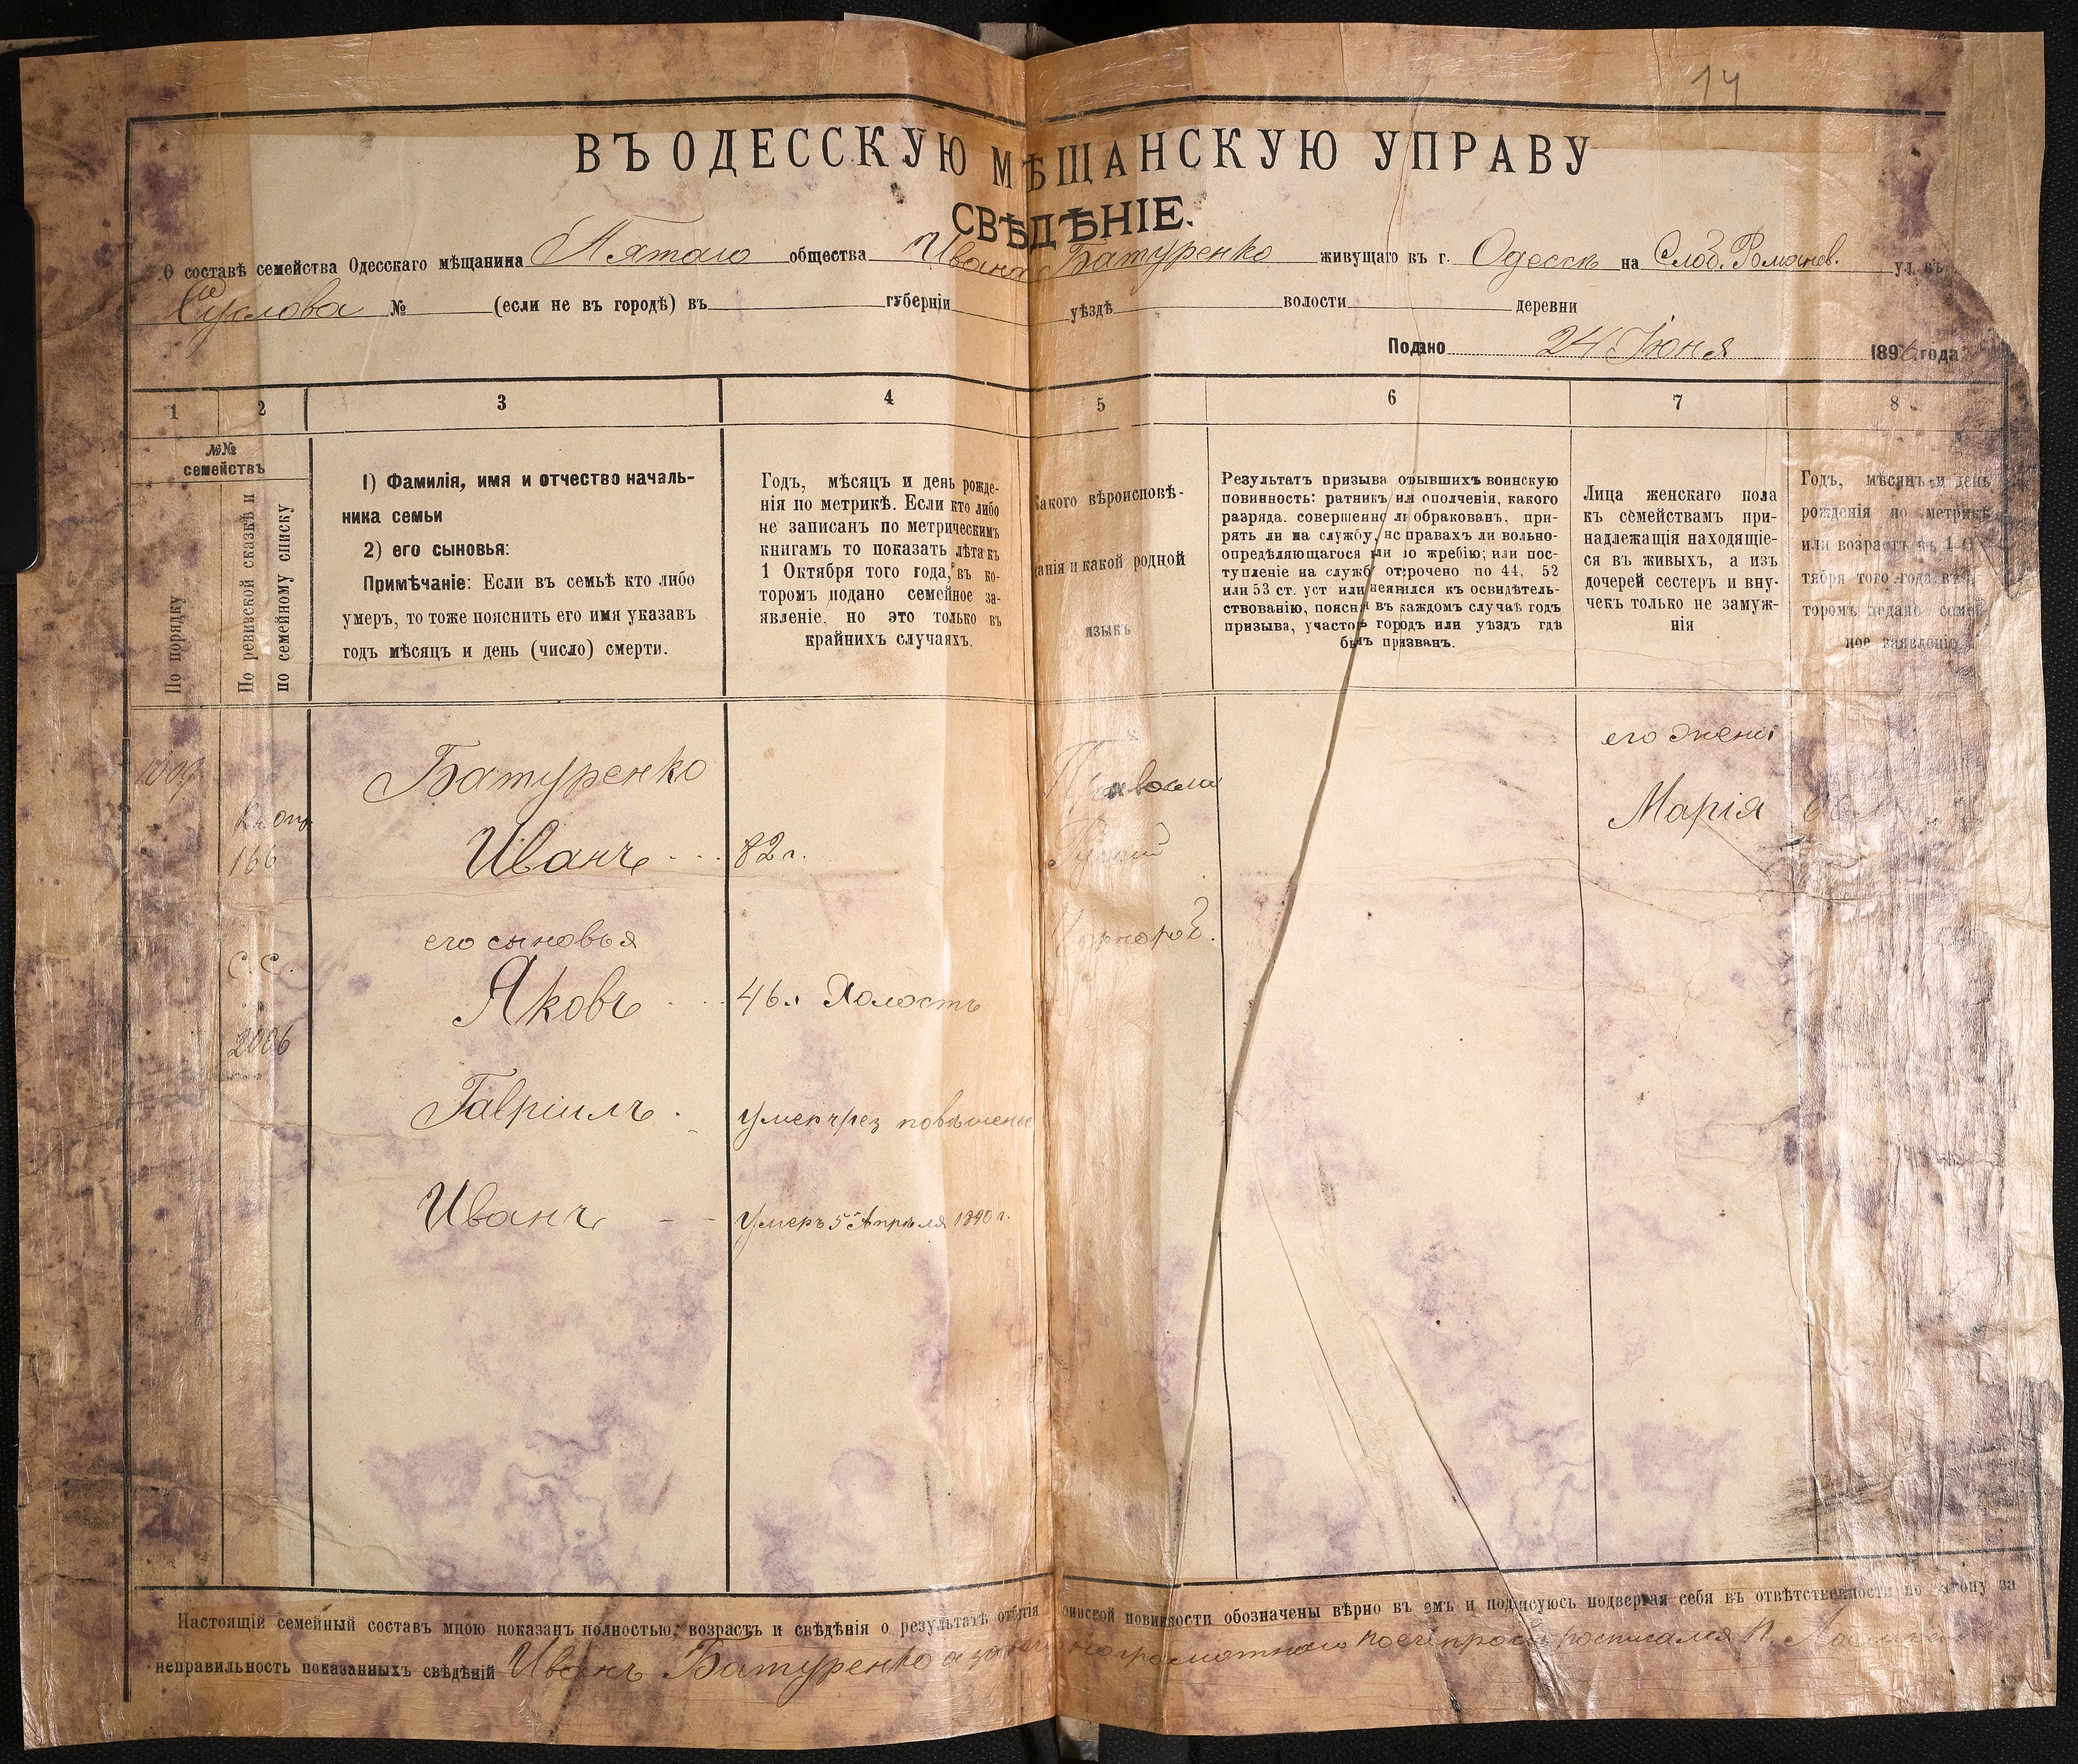 14
ВЪ ОДЕССКУЮ МѢЩАНСКУЮ УПРАВУ
СВѢДѢНІЕ.
О составѣ семейства Одесскаго мѣщанина Пятаго общества Ивана Батуренко живущаго въ г. Одессѣ на Слоб. Романов. ул. въ
№ (если не въ городѣ) въ губерніи уѣздѣ волости деревни
Подано 24 Іюня 189 года
1 2 3 4 5 6 7 8
№№
семействъ
По порядку
По ревизской сказкѣ и
по семейному списку
1) Фамилія, имя и отчество началь-
ника семьи
2) его сыновья:
Примѣчаніе: Если въ семьѣ кто либо
умеръ, то тоже пояснить его имя указавъ
годъ мѣсяцъ и день (число) смерти.
Годъ, мѣсяцъ и день рожде-
нія по метрикѣ. Если кто либо
не записанъ по метрическимъ
книгамъ то показать лѣта къ
1 Октября того года, въ ко-
торомъ подано семейное за-
явленіе, но это только въ
крайнихъ случаяхъ.
Какого вѣроисповѣ-
данія и какой родной
языкъ
Результатъ призыва отбывшихъ воинскую
повинность: ратникъ или ополченія, какого
разряда. совершенно ли обракованъ, при-
рять ли на службу, на правахъ ли вольно-
опредѣляющагося или по жребію; или пос-
тупленіе на службу отсрочено по 44, 52
или 53 ст. уст или неявился къ освидѣтель-
ствованію, поясня въ каждомъ случаѣ годъ
призыва, участокъ городъ или уѣздъ гдѣ
былъ призванъ.
Лица женскаго пола
къ семействамъ при-
надлежащія находящіе-
ся въ живыхъ, а изъ
дочерей сестеръ и вну-
чекъ только не замуж-
нія
Годъ, мѣсяцъ и день
рожденія по метрикѣ
или возрастъ къ 1 Ок-
тября того года въ ко-
торомъ подано семей-
ное заявленіе
его жена
1009 Батуренко Правосла
Марія
166 Иванъ 82 г. Русскій
его сыновья
с.с.
Яковъ 46 л Холостъ
2006
Гавріилъ умер чрез повѣшенье
Иванъ умеръ 5 Апрѣля 1890 г.
Настоящій семейный составъ мною показанъ полностью, возрастъ и свѣдѣнія о результатѣ отбытія воинской повинности обозначены вѣрно въ емъ и подписуюсь подвергая себя въ отвѣтственности по закону за
неправильность показанныхъ свѣдѣній Иванъ Батуренко а за него неграмотнаго по его просьбѣ росписался